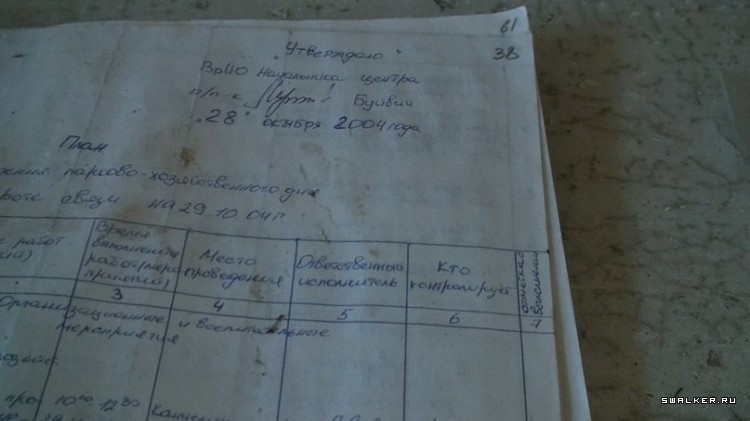 61
38
"Утверждаю"
ВрИО начальника центра
п/п-к Буйвич
"28" октября 2004 года
План
парково-хозяйственного дня
роте связи на 29.10.04г.
работ
Время выполнения работ(меро приятий)
Место проведения
Ответственный исполнитель
Кто контролирует
3 4 5 6 7
Организационное и воспитательное
мероприятия
10⁰⁰-12³⁰
SWALKER.RU